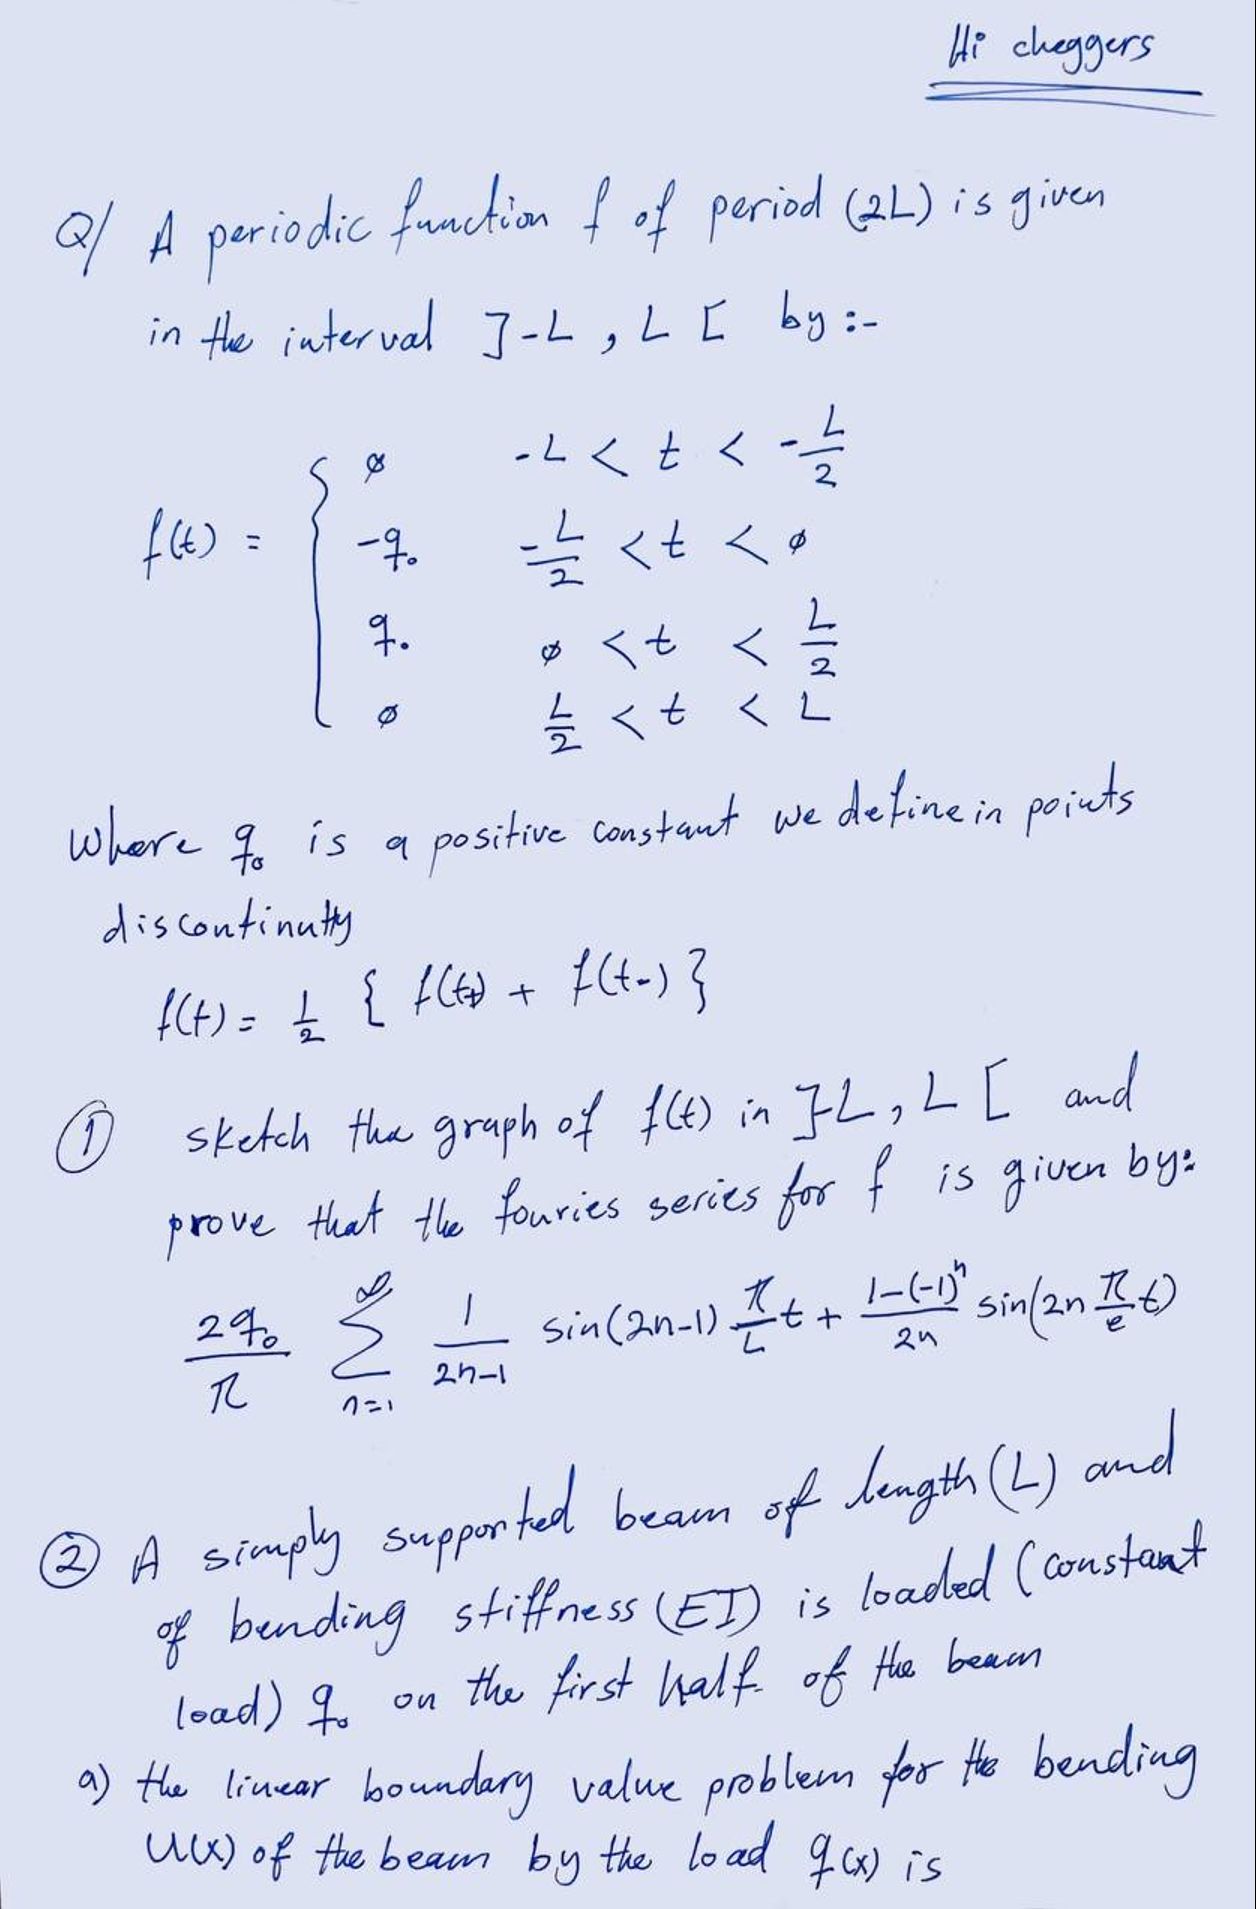 Hi cheggers
Q/ A periodic function f of period (2L) is given
in the interval ]-L , L [ by :-
f(t) = { ø -L < t < -L/2
-q₀ -L/2 < t < ø
q₀ ø < t < L/2
ø L/2 < t < L
Where q₀ is a positive constant we define in points
discontinutty
f(t) = 1/2 { f(t+) + f(t-) }
① sketch the graph of f(t) in ]-L , L [ and
prove that the fouries series for f is given by:
2q₀/π ∑_{n=1}^{∞} 1/(2n-1) sin(2n-1) π/L t + (1-(-1)ⁿ)/2n sin(2n π/e t)
② A simply supported beam of length (L) and
of bending stiffness (EI) is loaded (constant
load) q₀ on the first half of the beam
a) the linear boundary value problem for the bending
U(x) of the beam by the load q(x) is